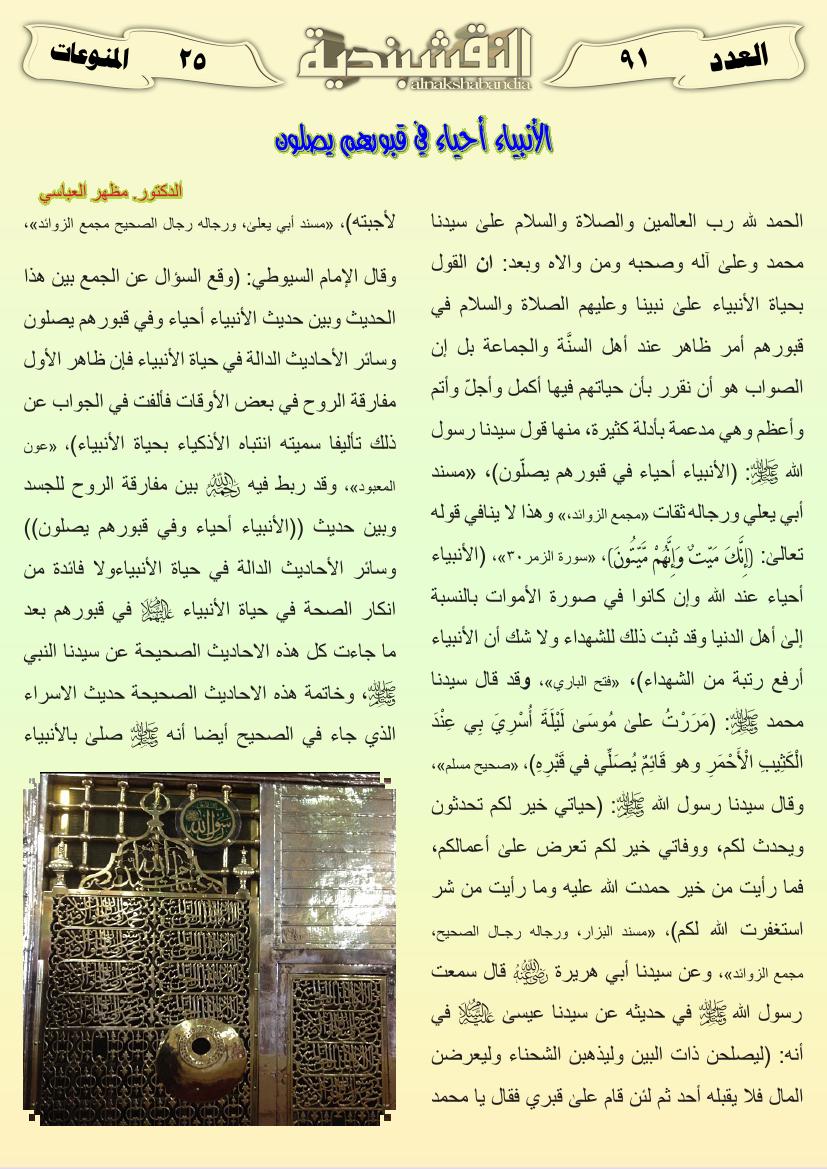 العدد
٩١
النقشبندية
alnakshabandia
٢٥
المنوعات
الأنبياء أحياء في قبورهم يصلون
الدكتور. مظهر العباسي
الحمد لله رب العالمين والصلاة والسلام على سيدنا
محمد وعلى آله وصحبه ومن والاه وبعد: ان القول
بحياة الأنبياء على نبينا وعليهم الصلاة والسلام في
قبورهم أمر ظاهر عند أهل السنَّة والجماعة بل إن
الصواب هو أن نقرر بأن حياتهم فيها أكمل وأجلّ وأتم
وأعظم وهي مدعمة بأدلة كثيرة، منها قول سيدنا رسول
الله ﷺ: (الأنبياء أحياء في قبورهم يصلّون)، «مسند
أبي يعلي ورجاله ثقات «مجمع الزوائد،» وهذا لا ينافي قوله
تعالى: (إِنَّكَ مَيِّتٌ وَإِنَّهُمْ مَّيِّتُونَ)، «سورة الزمر٣٠»، (الأنبياء
أحياء عند الله وإن كانوا في صورة الأموات بالنسبة
إلى أهل الدنيا وقد ثبت ذلك للشهداء ولا شك أن الأنبياء
أرفع رتبة من الشهداء)، «فتح الباري»، وقد قال سيدنا
محمد ﷺ: (مَرَرْتُ على مُوسَى لَيْلَةَ أُسْرِيَ بِي عِنْدَ
الْكَثِيبِ الْأَحْمَرِ وهو قَائِمٌ يُصَلِّي في قَبْرِهِ)، «صحيح مسلم»،
وقال سيدنا رسول الله ﷺ: (حياتي خير لكم تحدثون
ويحدث لكم، ووفاتي خير لكم تعرض على أعمالكم،
فما رأيت من خير حمدت الله عليه وما رأيت من شر
استغفرت الله لكم)، «مسند البزار، ورجاله رجال الصحيح،
مجمع الزوائد»، وعن سيدنا أبي هريرة رضي الله عنه قال سمعت
رسول الله ﷺ في حديثه عن سيدنا عيسى عليه السلام في
أنه: (ليصلحن ذات البين وليذهبن الشحناء وليعرضن
المال فلا يقبله أحد ثم لئن قام على قبري فقال يا محمد
لأجبته)، «مسند أبي يعلى، ورجاله رجال الصحيح مجمع الزوائد»،
وقال الإمام السيوطي: (وقع السؤال عن الجمع بين هذا
الحديث وبين حديث الأنبياء أحياء وفي قبورهم يصلون
وسائر الأحاديث الدالة في حياة الأنبياء فإن ظاهر الأول
مفارقة الروح في بعض الأوقات فألفت في الجواب عن
ذلك تأليفا سميته انتباه الأذكياء بحياة الأنبياء)، «عون
المعبود»، وقد ربط فيه رحمه الله بين مفارقة الروح للجسد
وبين حديث ((الأنبياء أحياء وفي قبورهم يصلون))
وسائر الأحاديث الدالة في حياة الأنبياءولا فائدة من
انكار الصحة في حياة الأنبياء عليهم السلام في قبورهم بعد
ما جاءت كل هذه الاحاديث الصحيحة عن سيدنا النبي
ﷺ، وخاتمة هذه الاحاديث الصحيحة حديث الاسراء
الذي جاء في الصحيح أيضا أنه ﷺ صلى بالأنبياء